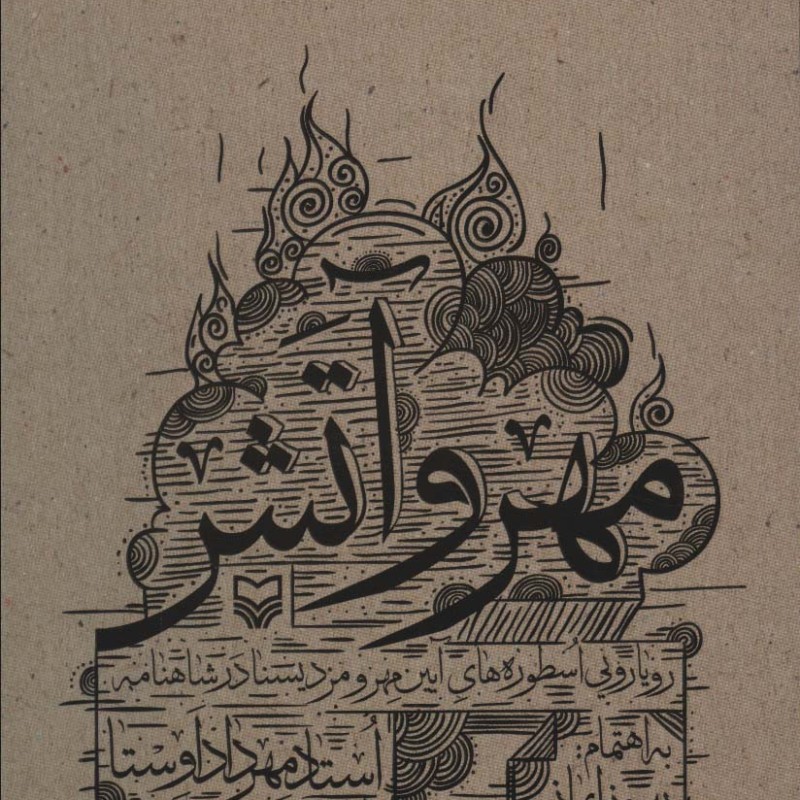 مهر و آتش
رویارویی اسطوره‌های آیین مهر و مزدیسنا در شاهنامه
استاد مهرداد اوستا
به اهتمام: